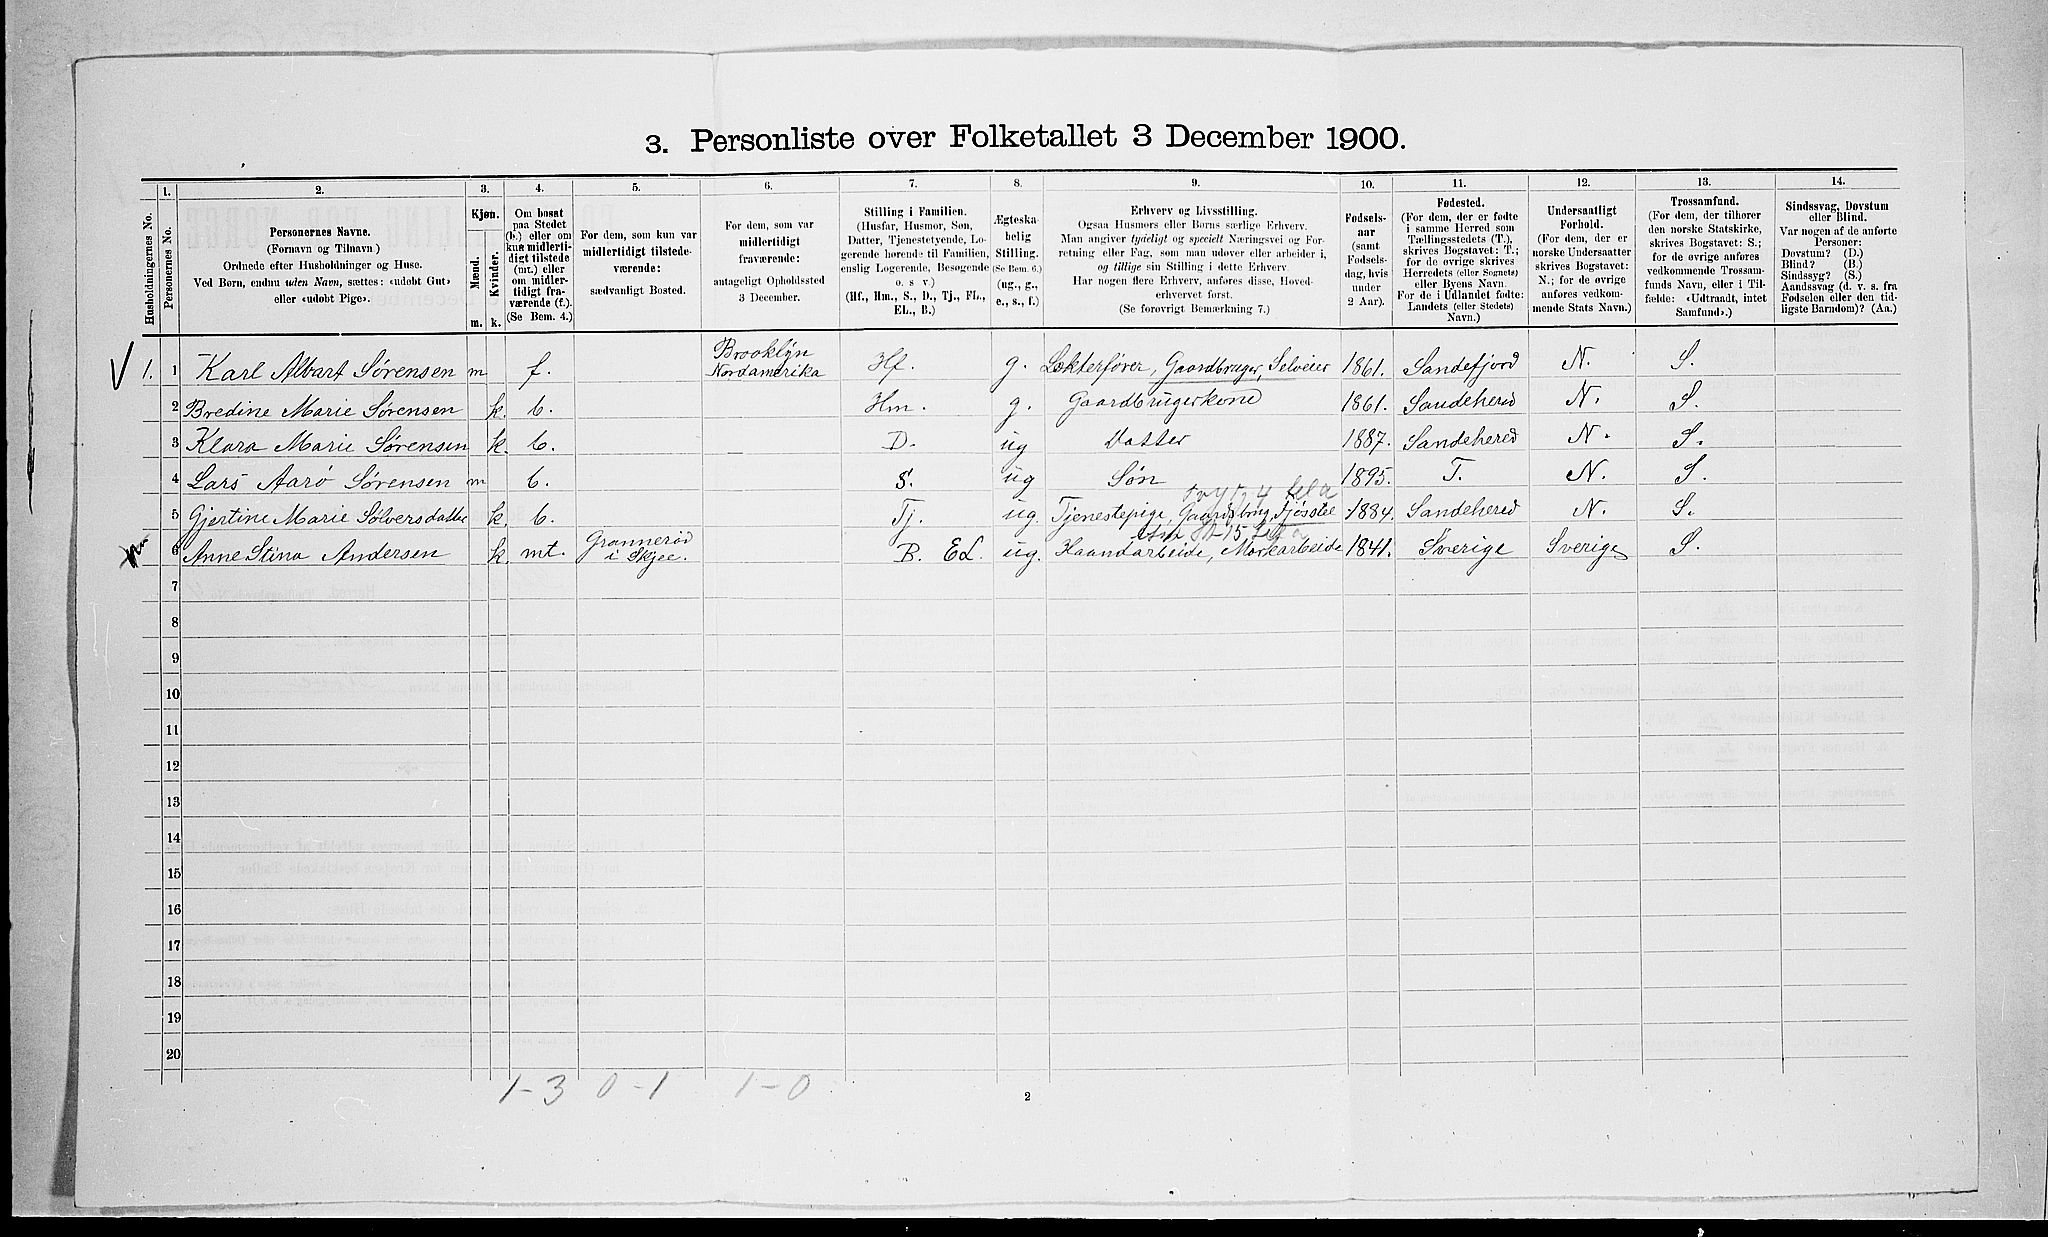 3. Personliste over Folketallet 3 December 1900.
Husholdningernes No.
1.
Personernes No.
2.
Personernes Navne.
(Fornavn og Tilnavn)
Ordnede efter Husholdninger og Huse.
Ved Børn, endnu uden Navn, sættes: «udøbt Gut»
eller «udøbt Pige».
3.
Kjøn.
Mænd.
Kvinder.
m. k.
4.
Om bosat
paa Stedet
(b.) eller om
kun midlerti-
digt tilstede
(mt.) eller
om midler-
tidigt fra-
værende (f.).
(Se Bem. 4.)
5.
For dem, som kun var
midlertidigt tilstede-
værende:
sædvanligt Bosted.
6.
For dem, som var
midlertidigt
fraværende:
antageligt Opholdssted
3 December.
7.
Stilling i Familien.
(Husfar, Husmor, Søn,
Datter, Tjenestetyende, Lo-
gerende hørende til Familien,
enslig Logerende, Besøgende
o. s v.)
(Hf., Hm., S., D., Tj., FL.,
EL., B.)
8.
Ægteska-
belig
Stilling.
(Se Bem. 6.)
(ug., g.,
e., s., f.)
9.
Erhverv og Livsstilling.
Ogsaa Husmors eller Børns særlige Erhverv.
Man angiver tydeligt og specielt Næringsvei og For-
retning eller Fag, som man udøver eller arbeider i,
og tillige sin Stilling i dette Erhverv.
Har nogen flere Erhverv, anføres disse, Hoved-
erhvervet først.
(Se forøvrigt Bemærkning 7.)
10.
Fødsels-
aar
(samt
Fødsels-
dag, hvis
under
2 Aar).
11.
Fødested.
(For dem, der er fødte
i samme Herred som
Tællingsstedets (T.),
skrives Bogstavet: T.;
for de øvrige skrives
Herredets (eller Sognets)
eller Byens Navn.
For de i Udlandet fødte:
Landets (eller Stedets)
Navn.)
12.
Undersaatligt
Forhold.
(For dem, der er
norske Undersaatter
skrives Bogstavet:
N.; for de øvrige
anføres vedkom-
mende Stats Navn.)
13.
Trossamfund.
(For dem, der tilhører
den norske Statskirke,
skrives Bogstavet: S.;
for de øvrige anføres
vedkommende Trossam-
funds Navn, eller i Til-
fælde: «Udtraadt, intet
Samfund».)
14.
Sindssvag, Døvstum
eller Blind.
Var nogen af de anførte
Personer:
Døvstum? (D.)
Blind? (B.)
Sindssyg? (S.)
Aandssvag (d. v. s. fra
Fødselen eller den tid-
ligste Barndom)? (Aa.)
1. 1 Karl Albart Sørensen m f. Brooklyn Nordamerika Hf. g. Lokterfører, Gaardbruger, Selveier 1861. Sandefjord N. S.
2 Bredine Marie Sørensen k. b. Hm. g. Gaardbrugerkone 1861. Sandeherred N. S.
3 Klara Marie Sørensen k. b. D. ug Datter 1887. Sandeherred N. S.
4 Lars Aarø Sørensen m b. S. ug Søn 1895. T. N. S.
5 Gjertine Marie Sølversdatter k. b. Tj. ug. Tjenestepige, Gaardsbrug, Fjøsstel 1884. Sandeherred N. S.
6 Anne Stina Andersen k. mt. Grannerød i Skjee. B. EL. ug. Haandarbeide, Markarbeide 1841. Sverige Sverige S.
7
8
9
10
11
12
13
14
15
16
17
18
19
20
1-3 0-1 1-0
2